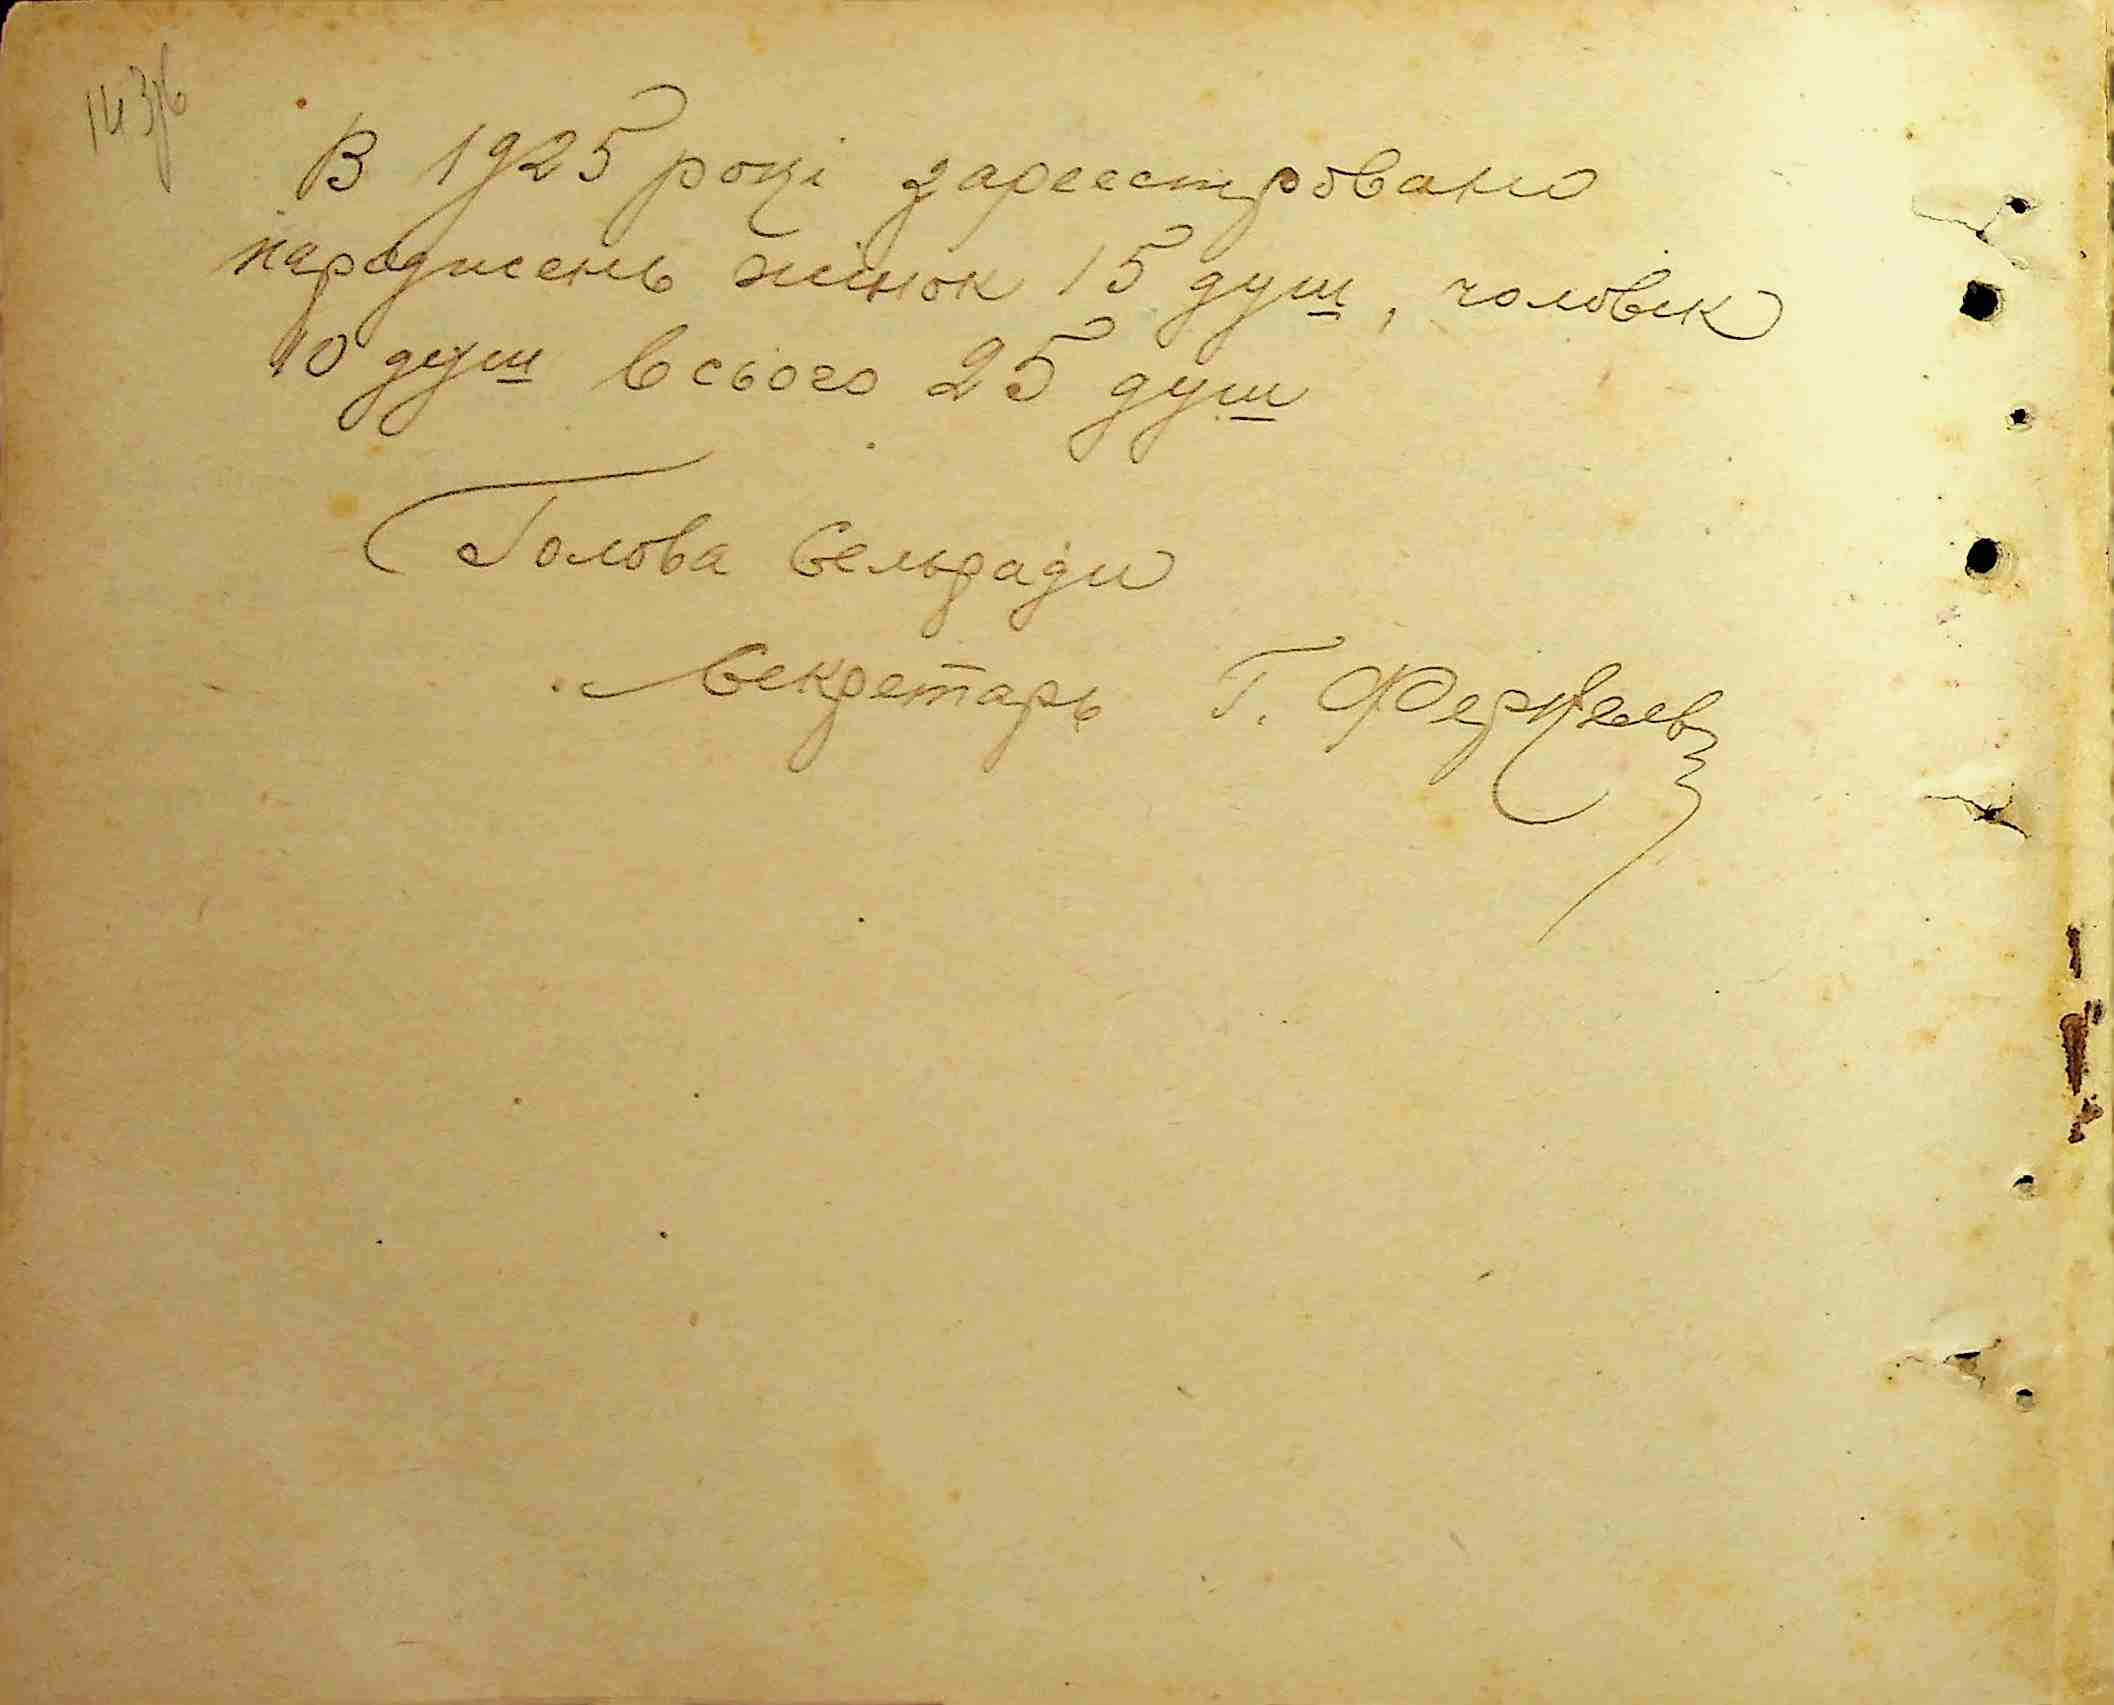 В 1925 році зареєстровано
народжень жінок 15 душ, чоловік
10 душ всього 25 душ
Голова Сельради
Секретарь Г.